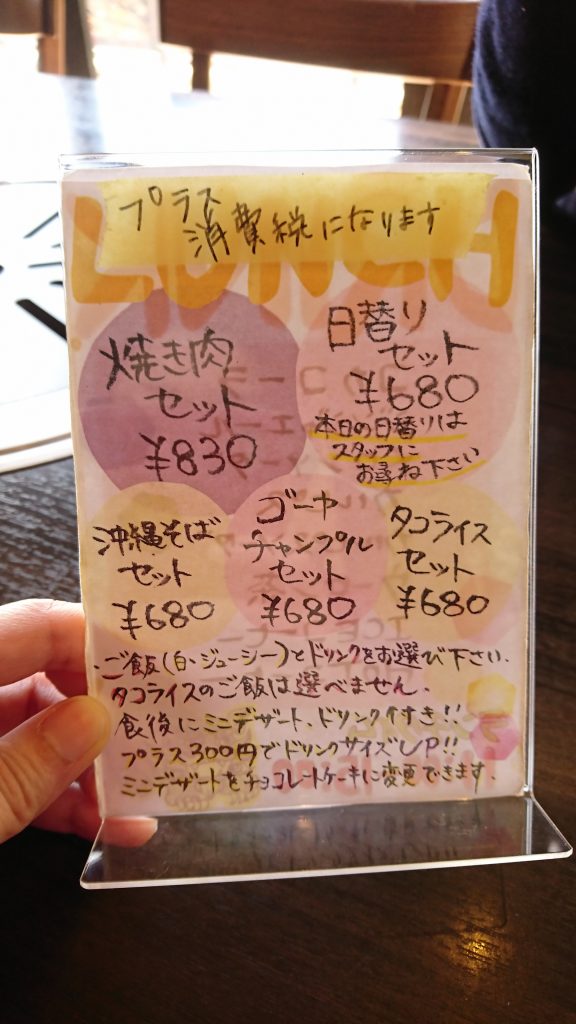 LUNCH
プラス
消費税になります
焼き肉
セット
¥830
日替り
セット
¥680
本日の日替りは
スタッフに
お尋ね下さい
沖縄そば
セット
¥680
ゴーヤ
チャンプル
セット
¥680
タコライス
セット
¥680
・ご飯(白・ジューシー)とドリンクをお選び下さい.
タコライスのご飯は選べません.
食後にミニデザート、ドリンク付き!!
プラス300円でドリンクサイズUP!!
ミニデザートをチョコレートケーキに変更できます.